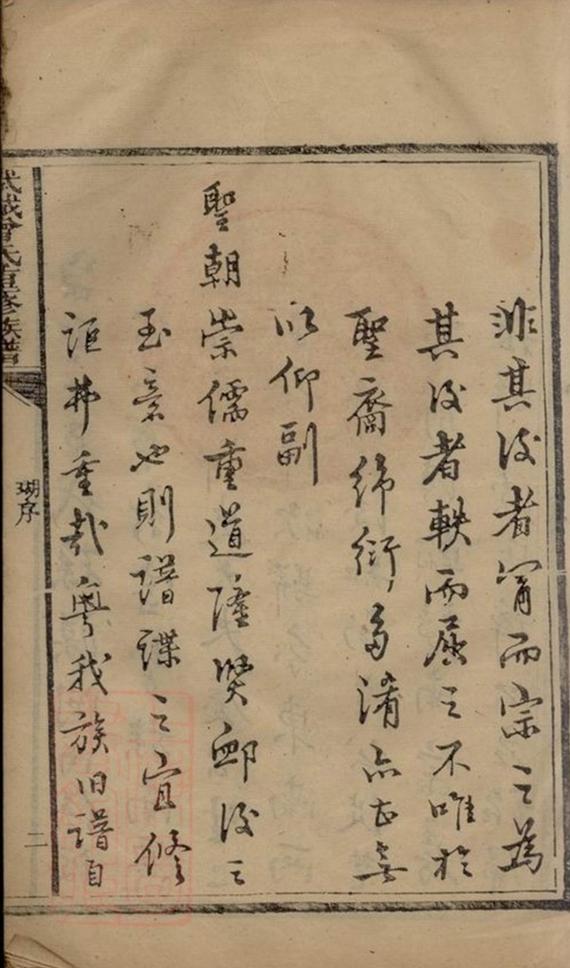 非其後者而宗之為
其後者軼而之不唯於
聖裔綿衍多淆亦無
以仰副
聖朝崇儒重道隆賢卹後之
至意也則譜諜之宜修
詎弗重哉粵我族旧譜自
武城曾氏重修族譜
瑚序
二